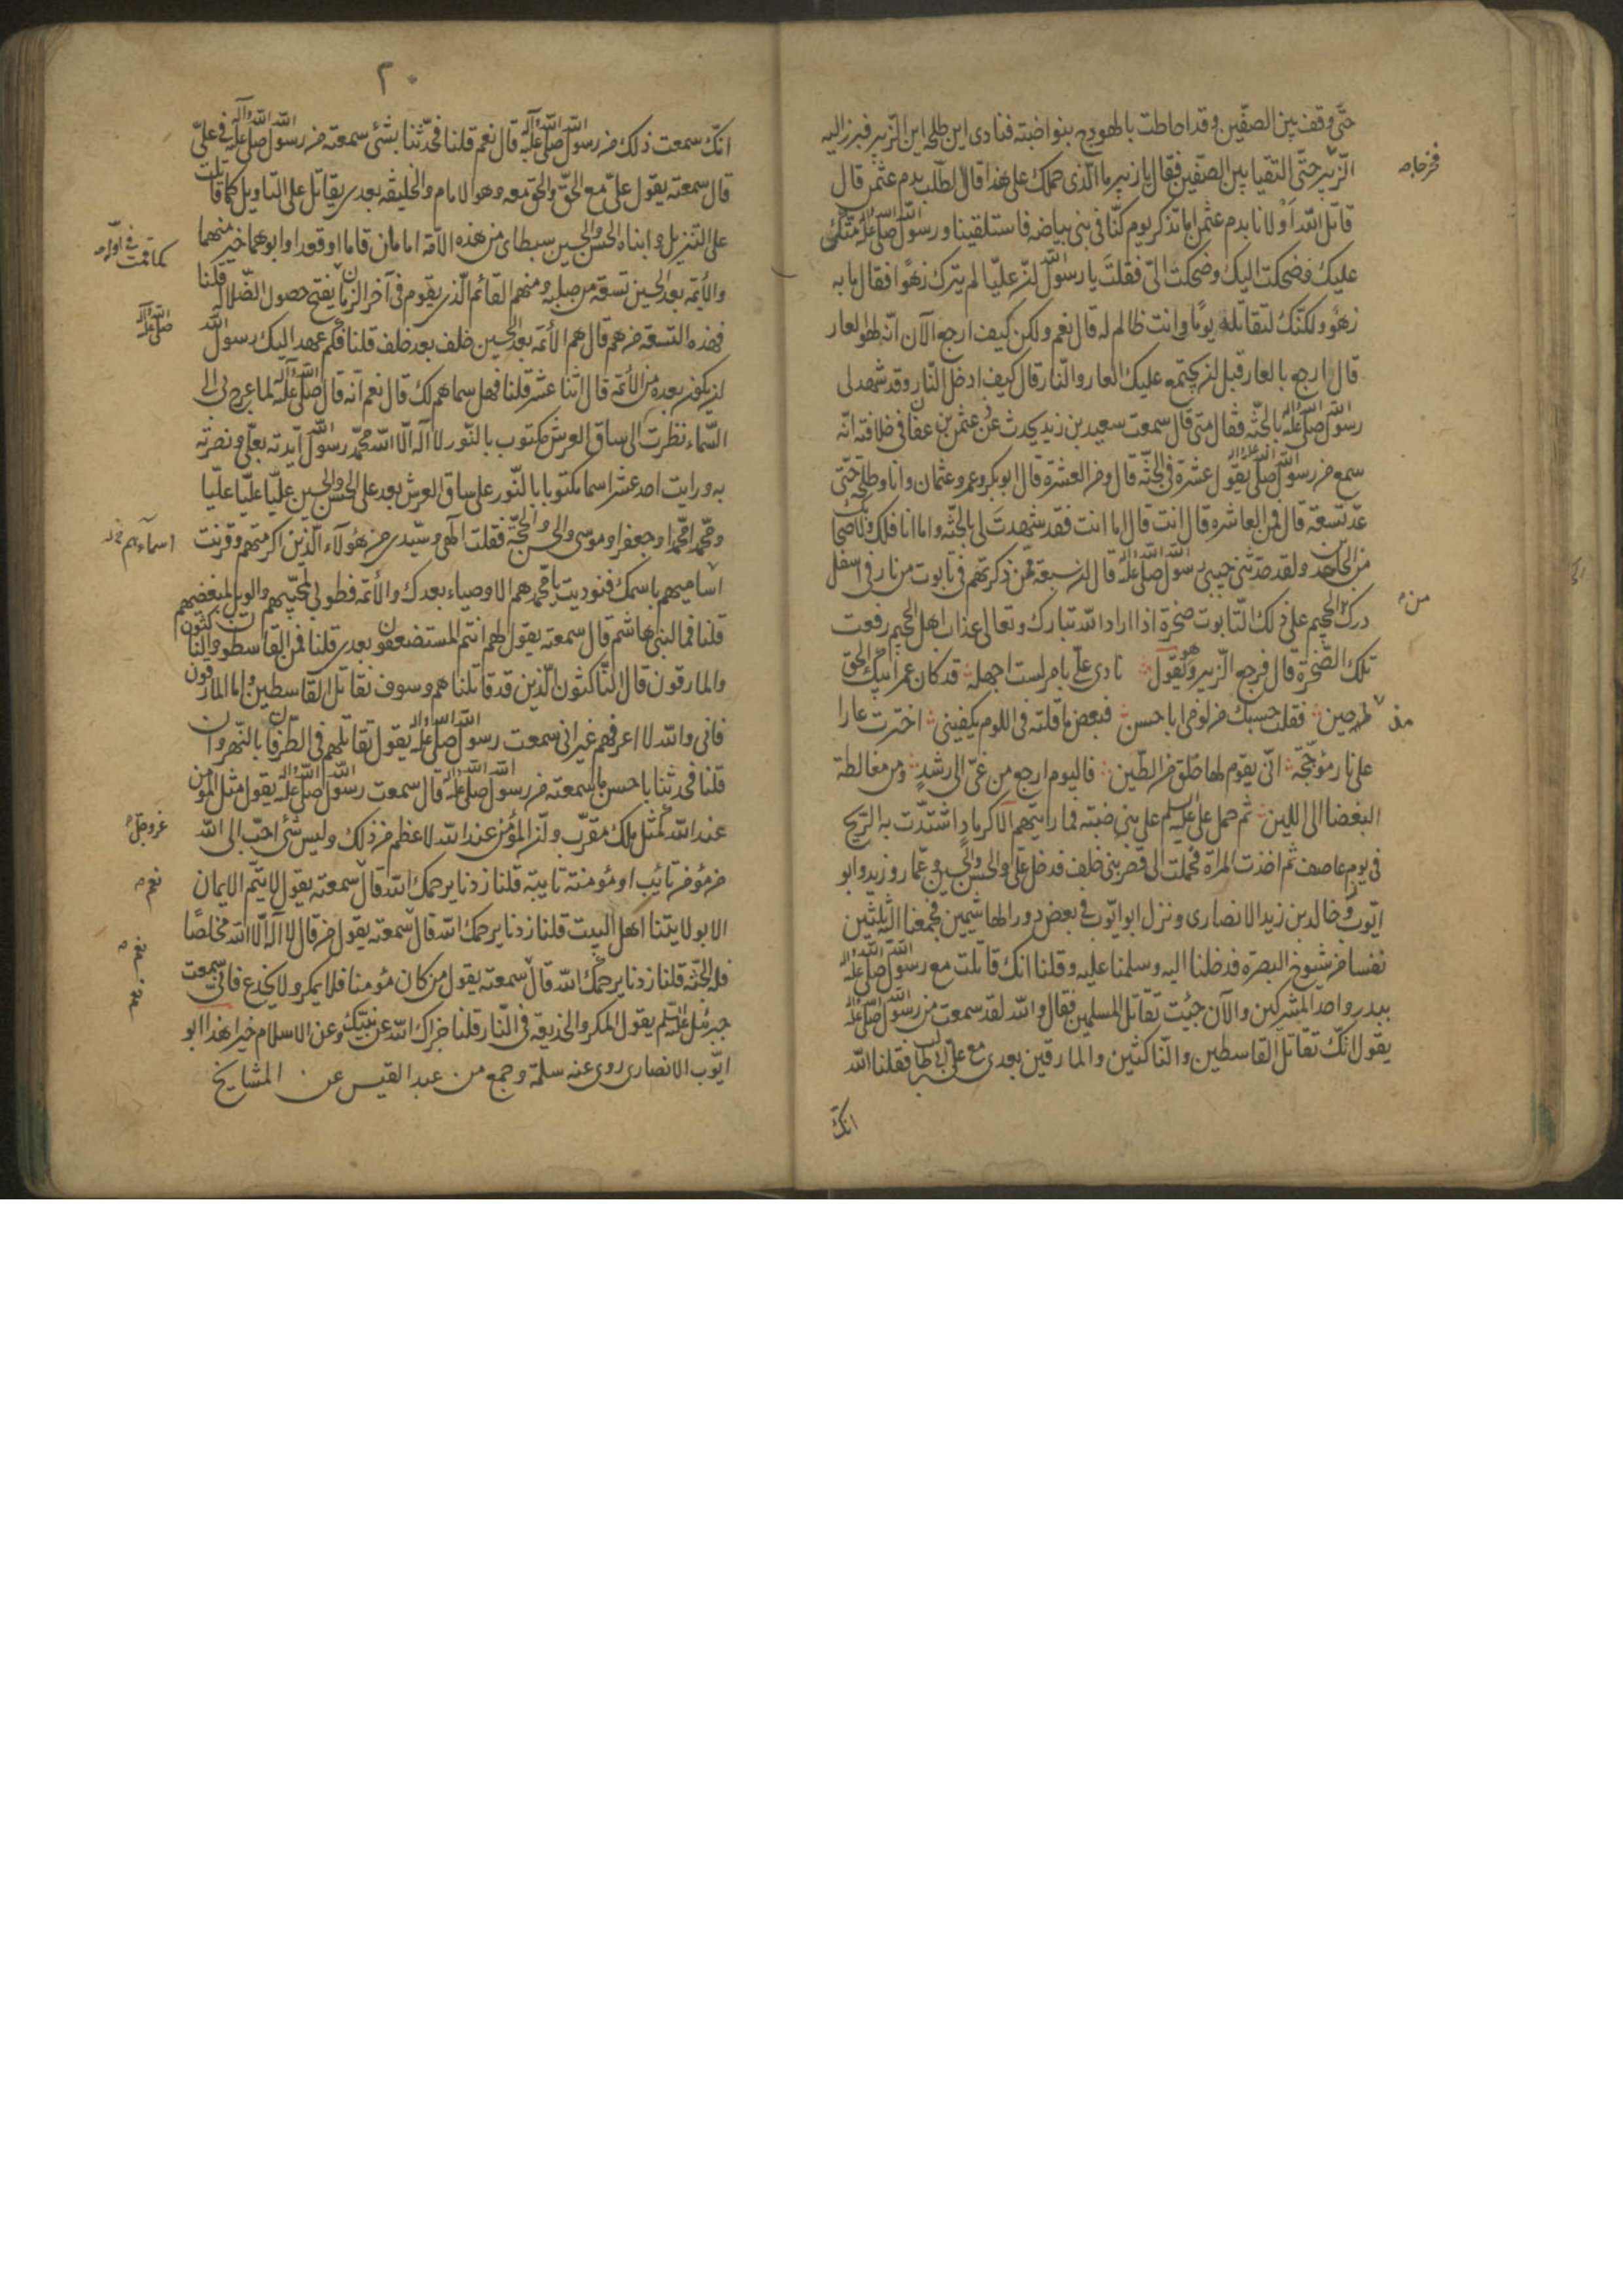 حتّى وقف بين الصفّين وقد احاطت بالهودج بنوا ضبّه فنادى اين طلحه اين الزّبير فبرز اليه
فخرجا
الزّبير حتّى التقيا بين الصفّين فقال يا زبير ما الّذى حملك على هذا قال الطلب بدم عثمن قال
قاتل الله اولانا بدم عثمن اما تذكر يوم كنّا فى بنى بياضه فاستلقينا ورسول الله صلى الله عليه متّكئ
عليك فضحكت اليك وضحكت الىّ فقلت يا رسول الله ان عليّا لم يترك زهوًا فقال ما به
زهو ولكنّك لتقاتله يومًا وانت ظالم له قال نعم ولكن كيف ارجع الآن انّه لهو العار
قال ارجع بالعار قبل ان يجتمع عليك العار والنّار قال كيف ادخل النّار وقد شهد لى
رسول الله صلى الله عليه واله بالجنّه فقال متى قال سمعت سعيد بن زيد يحدث عن عثمن بن عفان فى خلافته انّه
سمع من رسول الله صلى الله عليه واله يقول عشرة فى الجنّه قال ومن العشرة قال ابوبكر وعمر وعثمان وانا وطلحه حتّى
عدّ تسعة قال فمن العاشره قال انت قال اما انت فقد شهدت لى بالجنّه واما انا فلك ولاصحابك
من الجاحدين ولقد حدثنى حبيبى رسول الله صلى الله عليه واله قال ان سبعة ممّن ذكرتهم فى تابوت من نار فى اسفل
من
درك الجحيم على ذلك التابوت صخرة اذا اراد الله تبارك وتعالى عذاب اهل الجحيم رفعت
تلك الصّخرة قال فرجع الزبير وهو يقول نادى علىّ بامر لست اجهله قد كان عمر ابيك الحق
مذ حين فقلت حسبك من لومى ابا حسن فبعض ما قلته فى اللوم يكفينى اخترت عارا
على نار مؤججّة انّى يقوم لها خلق من الطّين فاليوم ارجع من غىّ الى رشدٍ ومن مغالطة
البغضا الى اللين ثم حمل على عليه السلم على بنى ضبّه فما رايتهم الّا كرمادٍ اشتدّت به الرّيح
فى يوم عاصف ثم اخذت المراة فحملت الى قصر بنى خلف فدخل علىّ والحسن والحسين وعمّار وزيد وابو
ايّوب وخالد بن زيد الانصارى ونزل ابو ايّوب فى بعض دور الهاشميين فجمعنا اليه ثلثين
نفسا من شيوخ البصره فدخلنا اليه وسلمنا عليه وقلنا انك قاتلت مع رسول الله صلى الله عليه واله
ببدر واحد المشركين والآن جئت تقاتل المسلمين فقال والله لقد سمعت من رسول الله صلى الله عليه
يقول انّك تقاتل القاسطين والنّاكثين والمارقين بعدى مع علىّ بن ابى طالب فقلنا الله
انّك
٢٠
انّك سمعت ذلك من رسول الله صلى الله عليه وآله قال نعم قلنا فحدّثنا بشئ سمعته من رسول الله صلى الله عليه وآله فى علىّ
قال سمعته يقول علىّ مع الحقّ والحق معه وهو الامام والخليفه بعدى يقاتل على التاويل كما قاتلت
على التنزيل وابناه الحسن والحسين سبطاى من هذه الامّة امامان قاما او قعدا وابوهما خير منهما
كما قمت فى اوّله
والأئمّه بعد الحسين تسعة من صلبه ومنهم القائم الّذى يقوم فى آخر الزمان يفتح حصون الضّلاله قلنا
فهذه التسعة من هم قال هم الأئمّه بعد الحسين خلف بعد خلف قلنا فكم عهد اليك رسول الله
صلى الله عليه وآله
ان يكون بعده من الأئمّة قال اثنا عشر قلنا فهل سماهم لك قال نعم انّه قال صلى الله عليه وآله لما عرج بى الى
السّماء نظرت الى ساق العرش مكتوب بالنّور لا اله الا الله محمّد رسول الله ايّدته بعلىّ ونصرته
به ورايت احد عشر اسما مكتوبا بالنّور على ساق العرش بعد على الحسن والحسين عليّا عليّا عليّا
ومحمّدا محمّدا وجعفرا وموسى والحسن والحجّة فقلت الهى وسيّدى من هؤلاء الّذين اكرمتهم وقرنت
اسماءهم خ ل
اساميهم باسمك فنوديت يا محمّد هم الاوصياء بعدك والأئمّه فطوبى لمحبّيهم والويل لمبغضهم
قلنا فما لبنى هاشم قال سمعته يقول لهم انتم المستضعفون بعدى قلنا فمن القاسطون والناكثون
والمارقون قال النّاكثون الّذين قد قاتلناهم وسوف نقاتل القاسطين واما المارقون
فانى والله لا اعرفهم غير انى سمعت رسول الله صلى الله عليه واله يقول تقاتلهم فى الطرقات بالنّهروان
قلنا فحدثنا باحسن ما سمعته من رسول الله صلى الله عليه واله قال سمعت رسول الله صلى الله عليه واله يقول مثل المؤمن
عند الله كمثل ملك مقرّب وانّ المؤمن عند الله لاعظم من ذلك وليس شئ احبّ الى الله
عزوجل
من مؤمن تائب او مؤمنة تايبة قلنا زدنا يرحمك الله قال سمعته يقول لا يتم الايمان
نعم
الا بولايتنا اهل البيت قلنا زدنا يرحمك الله قال سمعته يقول من قال لا اله الّا الله مخلصًا
نعم
فله الجنّه قلنا زدنا يرحمك الله قال سمعته يقول من كان مؤمنا فلا يمكر ولا يخدع فانّى سمعت
نعم
جبرئيل عليه السلم يقول المكر والخديعة فى النّار قلنا جزاك الله عن نبيّك وعن الاسلام خيرا هذا ابو
ايّوب الانصارى روى عنه سلمة وجمع من عبد القيس عن المشايخ